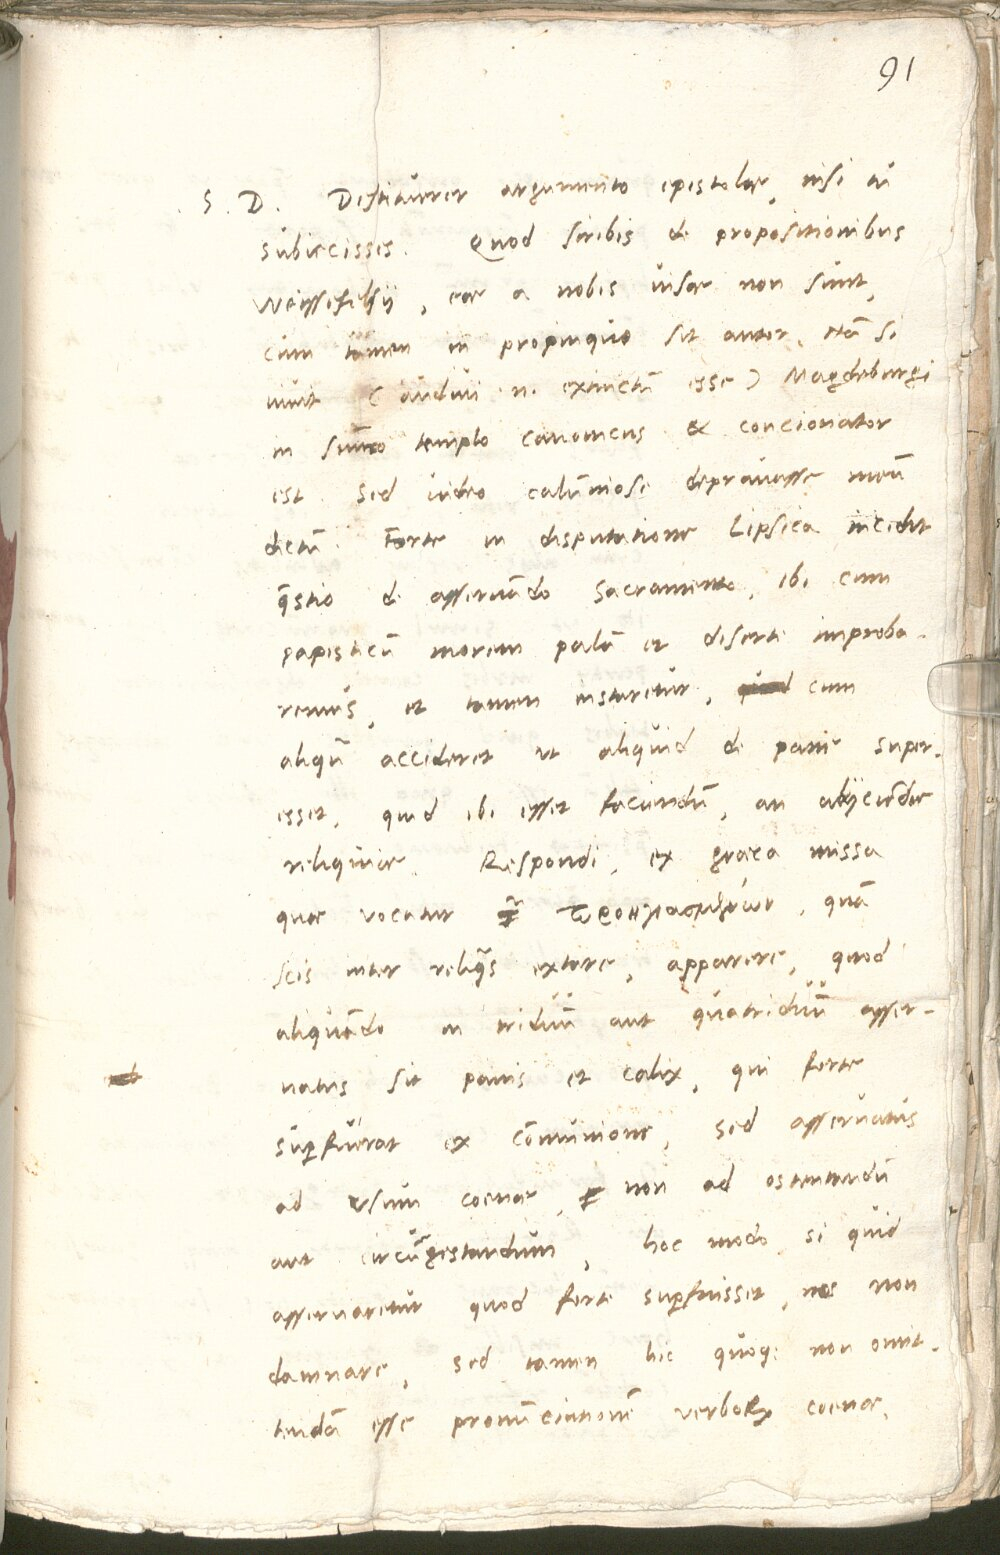 91
S. D. Destituerer argumento epistolae, nisi tu
subiecisses. Quod scribis de propositionibus
Weissefelsij, eae a nobis visae non sunt,
cum tamen in propinquo sit autor. Nā si
vivit (audivi n. extinctū esse) Magdeburgi
in sum̄o templo canonicus & concionator
est. Sed video calum̄niose depravasse meū
dictū. Forte in disputatione Lipsica incidit
q̄stio de asservādo Sacramento, ibi cum
papisticū morem palā et diserte improba-
remus, et tamen instaretur, cum
aliqn̄ accideret ut aliquid de pane super-
esset, quid ibi esset faciundū, an abijciēdae
reliquiae. Respondi, ex graeca missa
quae vocatur προηγιασμένων, quā
scis inter reliq̄s extare, apparere, quod
aliquādo in triduū aut quatriduū asser-
vatus sit panis et calix, qui forte
supfuerat ex cōmunione, sed asservatus
ad usum coenae, non ad ostentandū
aut circūgestandum, hoc modo si quid
asservaretur quod forte supfuisset, nos non
damnare, sed tamen hic quoq; non omit-
tendā esse pronūciationē verborꝝ coenae,